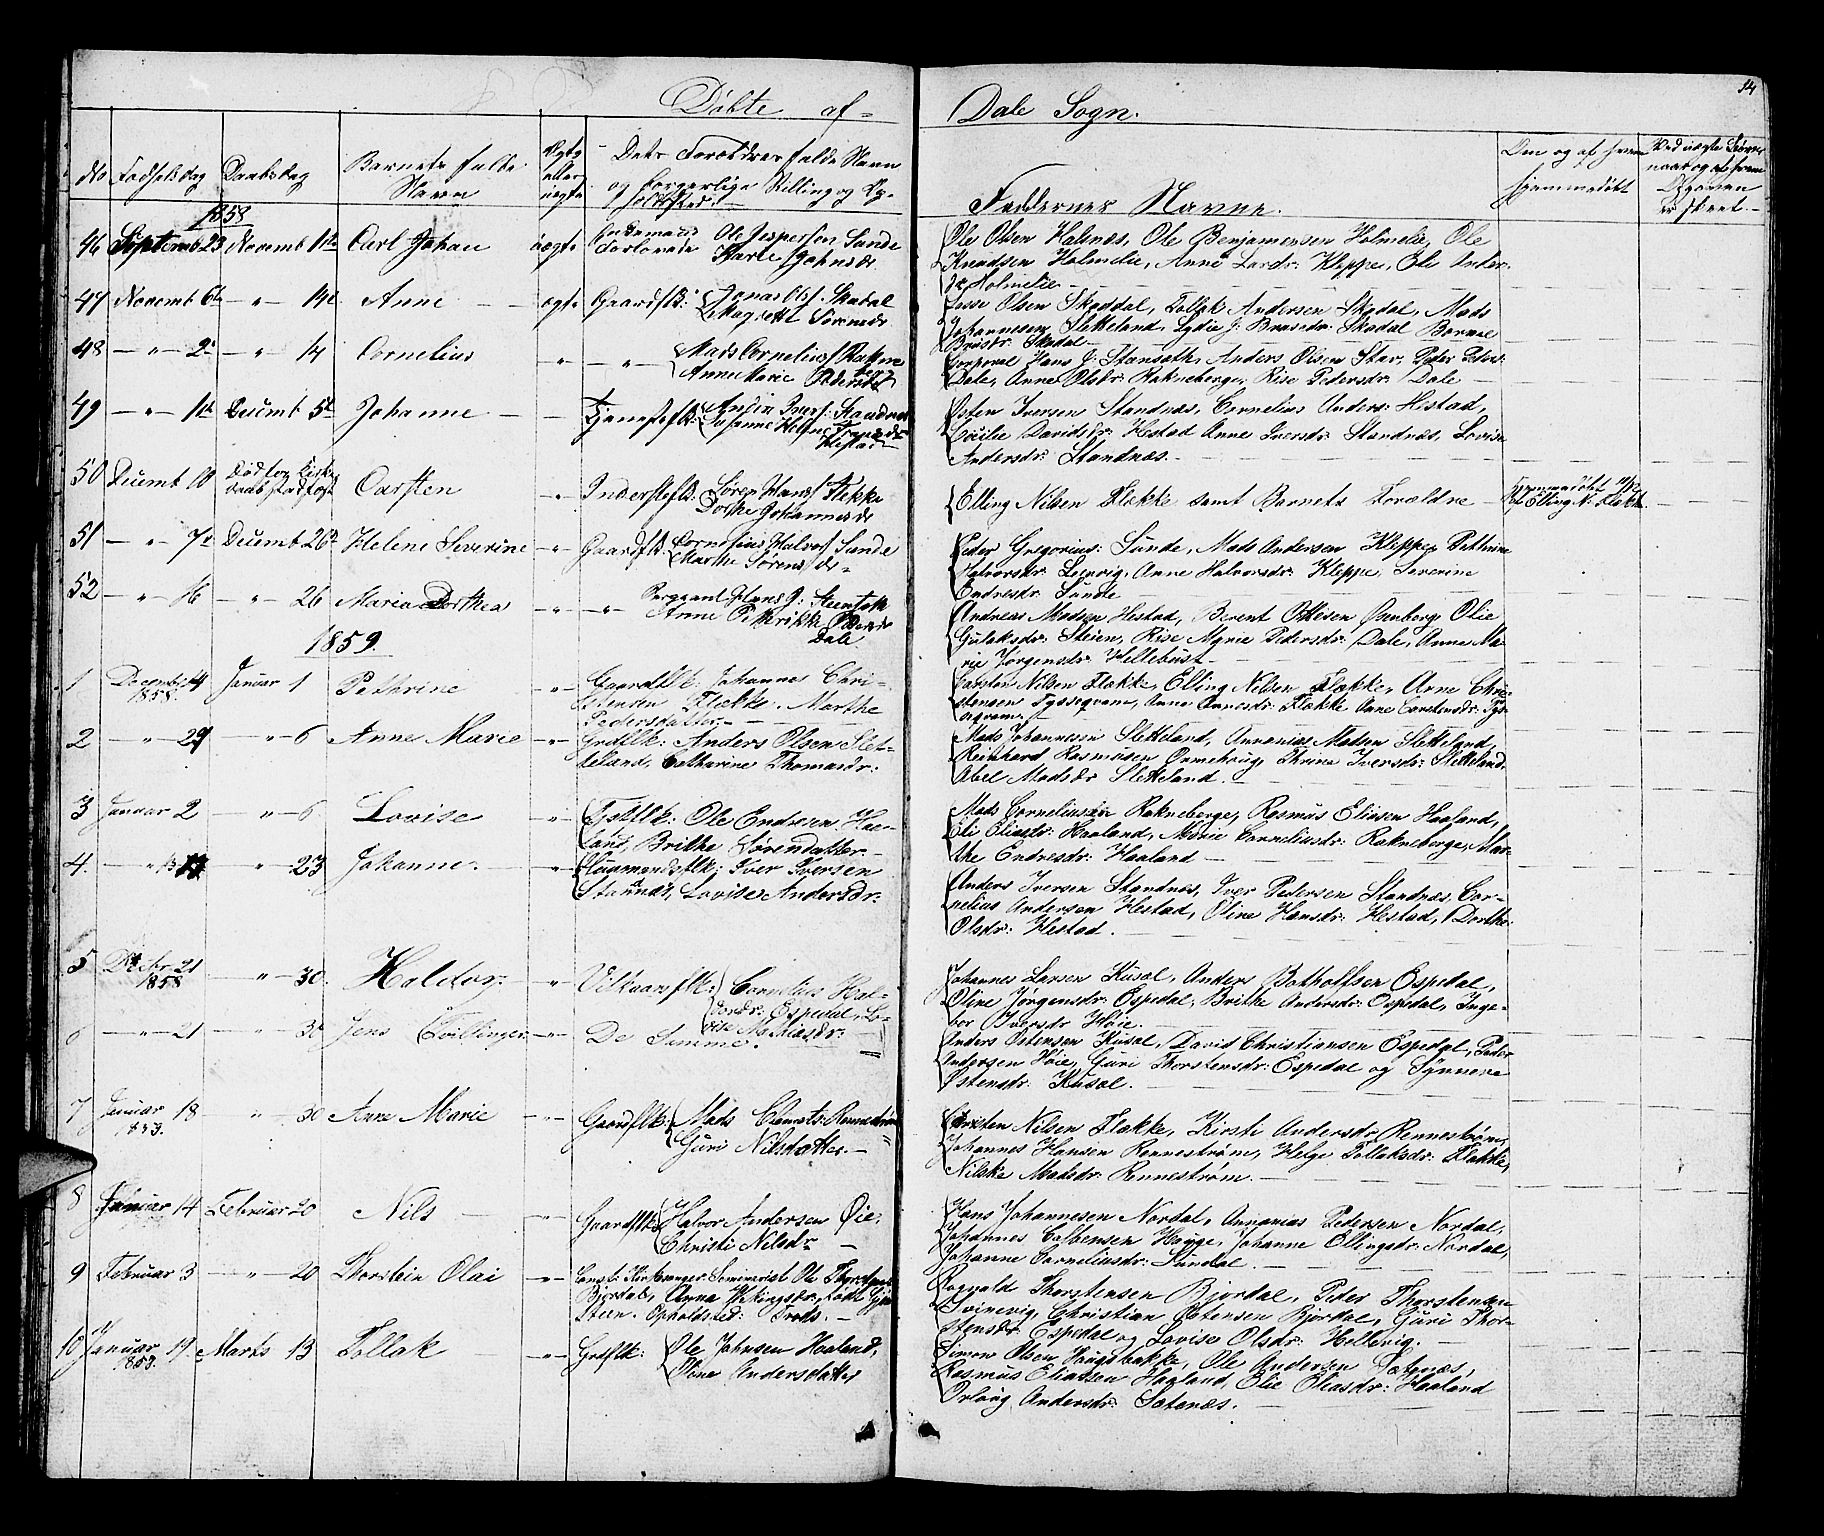 14
Døbte af
Dale Sogn.
No Fødselsdag Daabsdag Barnets fulde Navn Ægte eller uægte Dets Forældres fulde Navn og borgerlige Stilling og
Faddernes Navne.
Om og af hvem hjemmedøbt
1858
46 Septemb 23 Novemb Carl Johan uægte
Ole Jespersen Sande
Marte Johnsdr
Ole Olsen Halsnæs, Ole Benjamensen Holmelie, Ole
Knudsen Holmelie, Anne Larsdr: Kleppe, Eli Ander-
Holmelie
47 Novemb 6 — " — 14 Anne ægte Gaardflk: Jonas Olsf. Skadal
Magrett Sørensdr
Lasse Olsen Skaddal, Tollak Andersen Skadal, Mads
Johannesen Sletteland, Lydie J: Brusedr: Skadal
Skadal
48 — " — 2 — " — 14 Cornelius " — " — Mads Corneliusf Rakne
berg
Anne Marie Pedersdr
Corporal Hans J: Stensøth, Anders Olsen Stær, Peder Peders:
Dale, Anne Olsdr: Rakneberge, Rise Pedersdr: Dale
49 — " — Decemt 5 Johanne — Tjenestflk: Iversf: Standnæs
Susanne Heline
Hestad
Østen Iversen Standnæs, Cornelius Anders: Hestad,
Cicilie Davidsdr: Hestad Anne Iversdr: Standnæs, Lovise
Andersdr: Standnæs.
50 Decemt 10 Død før Kirke
daab stadfæst Carsten " Inderstflk: Søren Hansf Flekke
Dorthe Johannesdr
Elling Nilsen Flække samt Barnets Forældre
Hjemmedøbt
af Elling N: Flække
51 — " — 7 Decemt 26 Helene Severine — " — Gaardflk: Cornelius Halvorf Sunde
Marthe Sørensdr
Peder Gregorius: Sunde, Mads Andersen Kleppe, Pethrine
Halvorsdr: Leirvig, Anne Halvorsdr: Kleppe, Severine
Endresdr: Sunde
52 — " — 16 — " — 26 Maria Dorthea " " Sergeant Hans J: Steensøth
Anne Pethrikke Pedersdr
Dale
Andreas Madsen Hestad, Berent Ottesen Øenberg Olie
Gulaksdr: Steien, Rise Myrie Pedersdr: Dale, Anne Ma-
rie Jørgensdr: Hellebust
1859
1 December 14
1858. Januar 1 Pethrine — " — Gaardflk: Johannes Chri-
stensen Flække. Marthe
Pedersdatter.
Carsten Nilsen Flække, Elling Nilsen Flække, Anne Chri-
stensen Tyssegvam, Anne Flække Anne Carstensdr: Tys-
segvam.
2 — " — 29 — " — 6 Anne Marie — " — Grdflk: Anders Olsen Slet-
teland, Catharine Thomasdr:
Mads Johannesen Sletteland, Annanias Madsen Sletteland,
Reinhard Rasmusen Ormehoug, Thrine Iversdr: Sletteland,
Abel Madsdr Sletteland.
3 Januar 2 — " — 6 Lovise " Grdflk: Ole Endresen Haa-
land, Brithe Sørendatter.
Mads Corneliusen Rakneberge, Rasmus Eliasen Haaland,
Eli Eliasdr: Haaland, Marie Corneliusdr: Rakneberge, Mar-
the Endresdr: Haaland
4. — " 13 " — 23 Johanne. — " — Huusmandsflk: Iver Iversen
Standnæs, Lovise Andersdr:
Anders Iversen Standnæs, Iver Pedersen Standnæs, Cor-
nelius Andersen Hestad, Oline Hansdr: Hestad, Dorthe
Olsdr: Hestad.
5 Decbr 21
1858 " — 30. Haldor. " Vilkaarsflk: Cornelius Hal-
vordr: Espedal, Lo-
vise Mathiasdr:
Johannes Larsen Kusæl, Anders Botholfsen Espedal,
Oline Jørgensdr: Espedal, Brithe Andersdr: Espedal, Inge-
bor Iversdr Høie.
6 — " — 21 — " — 30 Jens Tvillinger — " — De Samme.
Anders Østensen Kusæl, David Christiansen Espedal, Peder
Andersen Høie, Guri Thorstensdr: Espedal og Synneve
Østensdr: Kusæl.
7 Januar 18 " — 30 Anne Marie — " — Gaardflk: Mads Clemets: Rennestrøm
Guri Nilsdatter.
Christen Nilsen Flække, Kirsti Andersdr Rennestrøm,
Johannes Hansen Rennestrøm, Helge Tollaksdr: Flække,
Nilske Madsdr: Rennestrøm.
8 Januar 14 Februar 20 Nils " Gaardflk: Halvor Andersen Øie,
Christi Nilsdr
Hans Johannesen Nordal, Annanias Pedersen Nordal,
Johannes Hauge, Johanne Ellingsdr: Nordal,
Johanne Corneliusdr: Sundal.
9 Februar 3 — " — 20 Thorstein Olai — " — Const: Kirkesanger Seminarist Ole Thorstensen
Bjordal, Anna Vikingsdr, født
Steen. Opholdsted:
Ragvald Thorstensen Bjordal, Peder Thorstensen
Svinevig, Christian Østensen Bjordal, Guri Thor-
stensdr: Espedal og Lovise Olsdr: Hellevig.
10 Januar 19 Marts 13 Tollak — " — Grdflk: Ole Johnsen Haaland,
Oline Andersdatter
Simon Olsen Haugsbakke, Ole Andersen Sætenæs,
Rasmus Eliassen Haaland, Elie Eliasdr: Haaland
Orlaug Andersdr: Sætenæs.